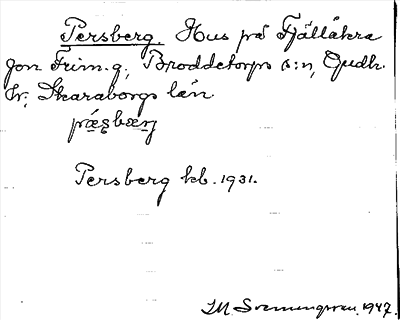 Persberg. Hus på Fjällåkra
Jon Frim. g., Broddetorps s:n, Gudh.
hr., Skaraborgs län
pæ̣ṣbærj
Persberg kb. 1931.
1947.